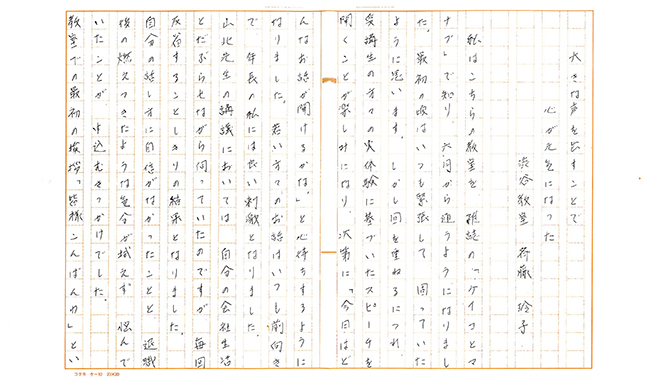 大きな声を出すことで
心が元気になった
渋谷教室 斎藤 玲子
私はこちらの教室を 雑誌の「ケイコとマ
ナブ」で知り 六月から通うようになりまし
た。最初の頃はいつも緊張して 固っていた
ように思います。しかし回を重ねるにつれ
受講生の方々の実体験に基づいたスピーチを
聞くことが楽しみになり、次第に「今日はど
んなお話が聞けるかな。」と心待ちするように
なりました。若い方々のお話はいつも前向き
で 年長の私には良い刺激となりました。
山北先生の講議においては 自分の会社生活
とだぶらせながら伺っていたのですが 毎回
反省することしきりの結果となりました。
自分の話し方に自信がなかったことと 退職
後の燃えつきたような気分が拭えず 悩んで
いたことが 申込むきっかけでした。
教室での最初の挨拶「皆様こんばんわ」とい
コクヨ ケー10 20×20